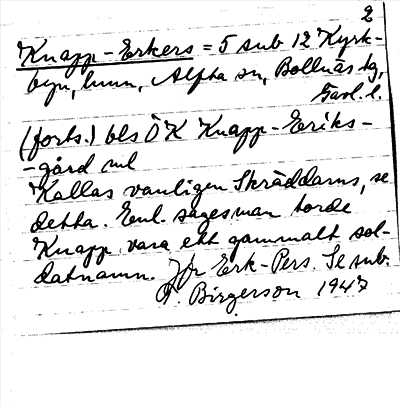 2
Knapp-Erkers = 5 sub 12 Kyrk-
byn, hmn, Alfta sn, Bollnäs tg,
Gävl. l.
(forts.) bls ÖK Knapp-Eriks-
-gård ml
Kallas vanligen Skräddarns, se
detta. Enl. sagesman torde
Knapp vara ett gammalt sol-
datnamn. Jfr Erk-Pers. Se sub.
F. Birgerson 1947